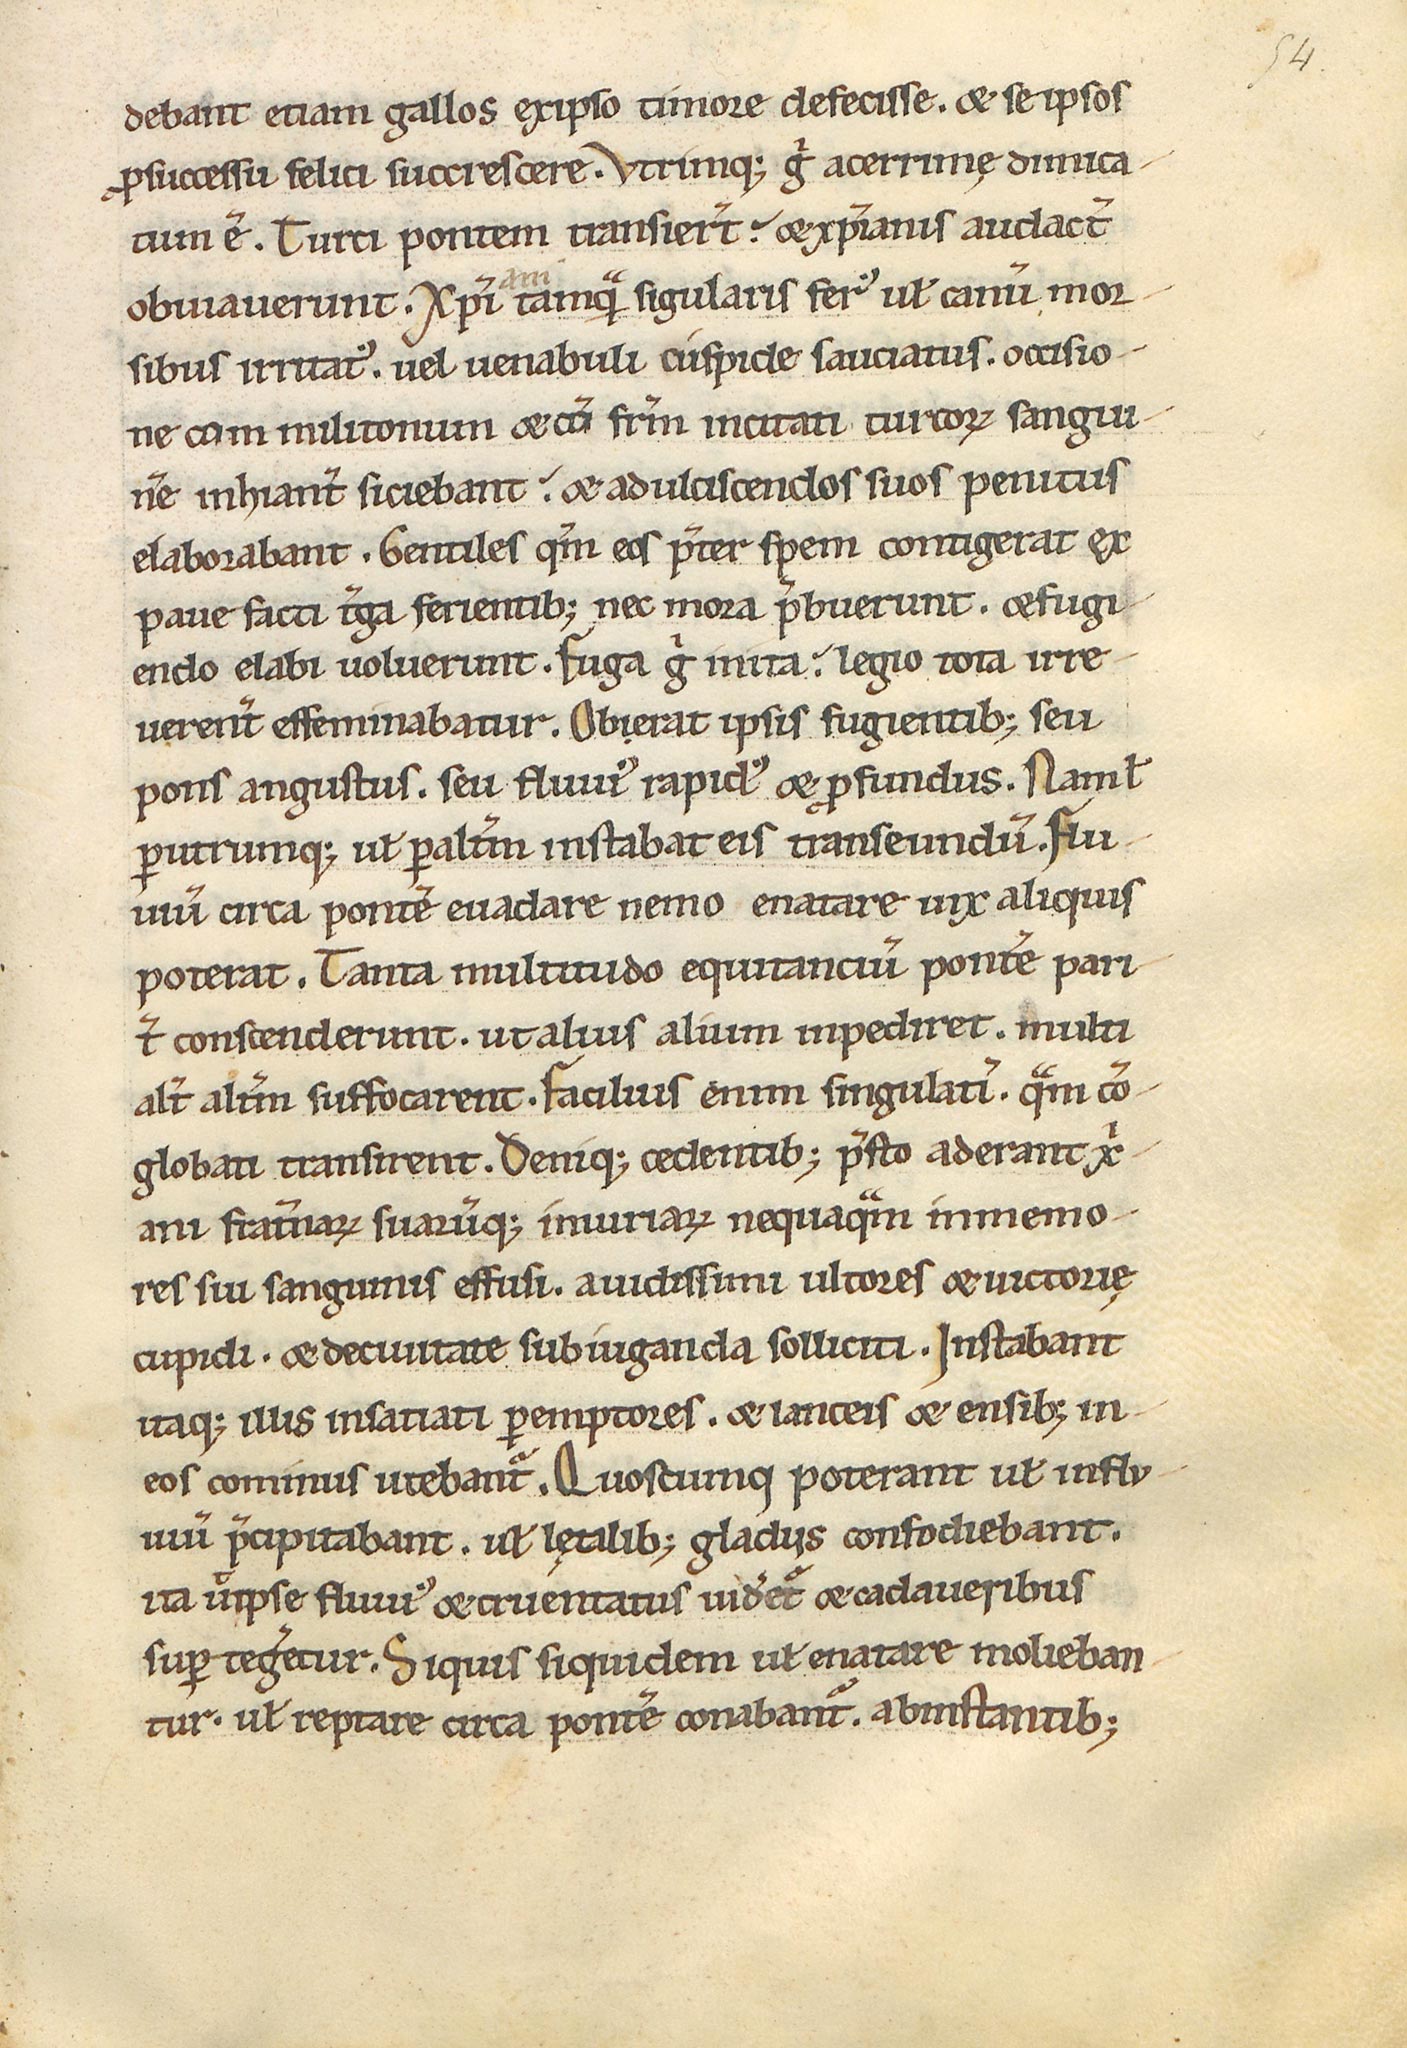 54
debant etiam gallos exipso timore defecisse. & se ipsos
ꝓsuccessu felici succrescere. Vtrimq; g̾ acerrimę dimica-
tum ē. Turci pontem transier̄t. & xp̄ianis audact̄
obuiauerunt. Xp̄iani tamqᷓ sigularis ferꝰ uł canū mor-
sibus irritatꝰ. uel uenabuli cuspide sauciatus. occisio-
ne com militonum & cū fr̄m incitati turcoꝝ sangui-
ne inhiant̄ siciebant. & adulciscendos suos penitus
elaborabant. Gentiles qm̄ eis p̄ter spem contigerat ex
paue facti t̄ga ferientib; nec mora p̄buerunt. & fugi-
endo elabi uoluerunt. Fuga g̾ inita. legio tota irre-
uerent̄ effeminabatur. Obierat ipsis fugientib; seu
pons angustus. seu fluuiꝰ rapidꝰ & ꝓfundus. Nam ł
ꝑutrumq; uł ꝑalt̄m instabat eis transeundū. Flu-
uiū circa pontē euadare nemo enatare uix aliquis
poterat. Tanta multitudo equitanciū pontē pari-
t̄ conscenderunt. ut alius alium inpediret. multi
alt̄ alt̄m suffocarent. Facilius enim singulatī. qᷓm cō-
globati transirent. Deniq; cedentib; p̄sto aderant xp̄i-
ani frat̄naꝝ suarūq; iniuriaꝝ nequaqᷓm inmemo-
res sui sanguinis effusi. auidissimi ultores & uictorię
cupidi. & deciuitate subiuganda solliciti. Instabant
itaq; illis insatiati ꝑemptores. & lanceis & ensib; in-
eos cominus utebant᷑. Quoscumq poterant uł influ-
uiū p̄cipitabant. uł lętalib; gladiis confodiebant.
ita uͭ ipse fluuiꝰ & cruentatus uideret᷑ & cadaueribus
suꝑ tegeretur. Siquis siquidem uł enatare molieban-
tur. uł reptare circa pontē conabant᷑. abinstantib;